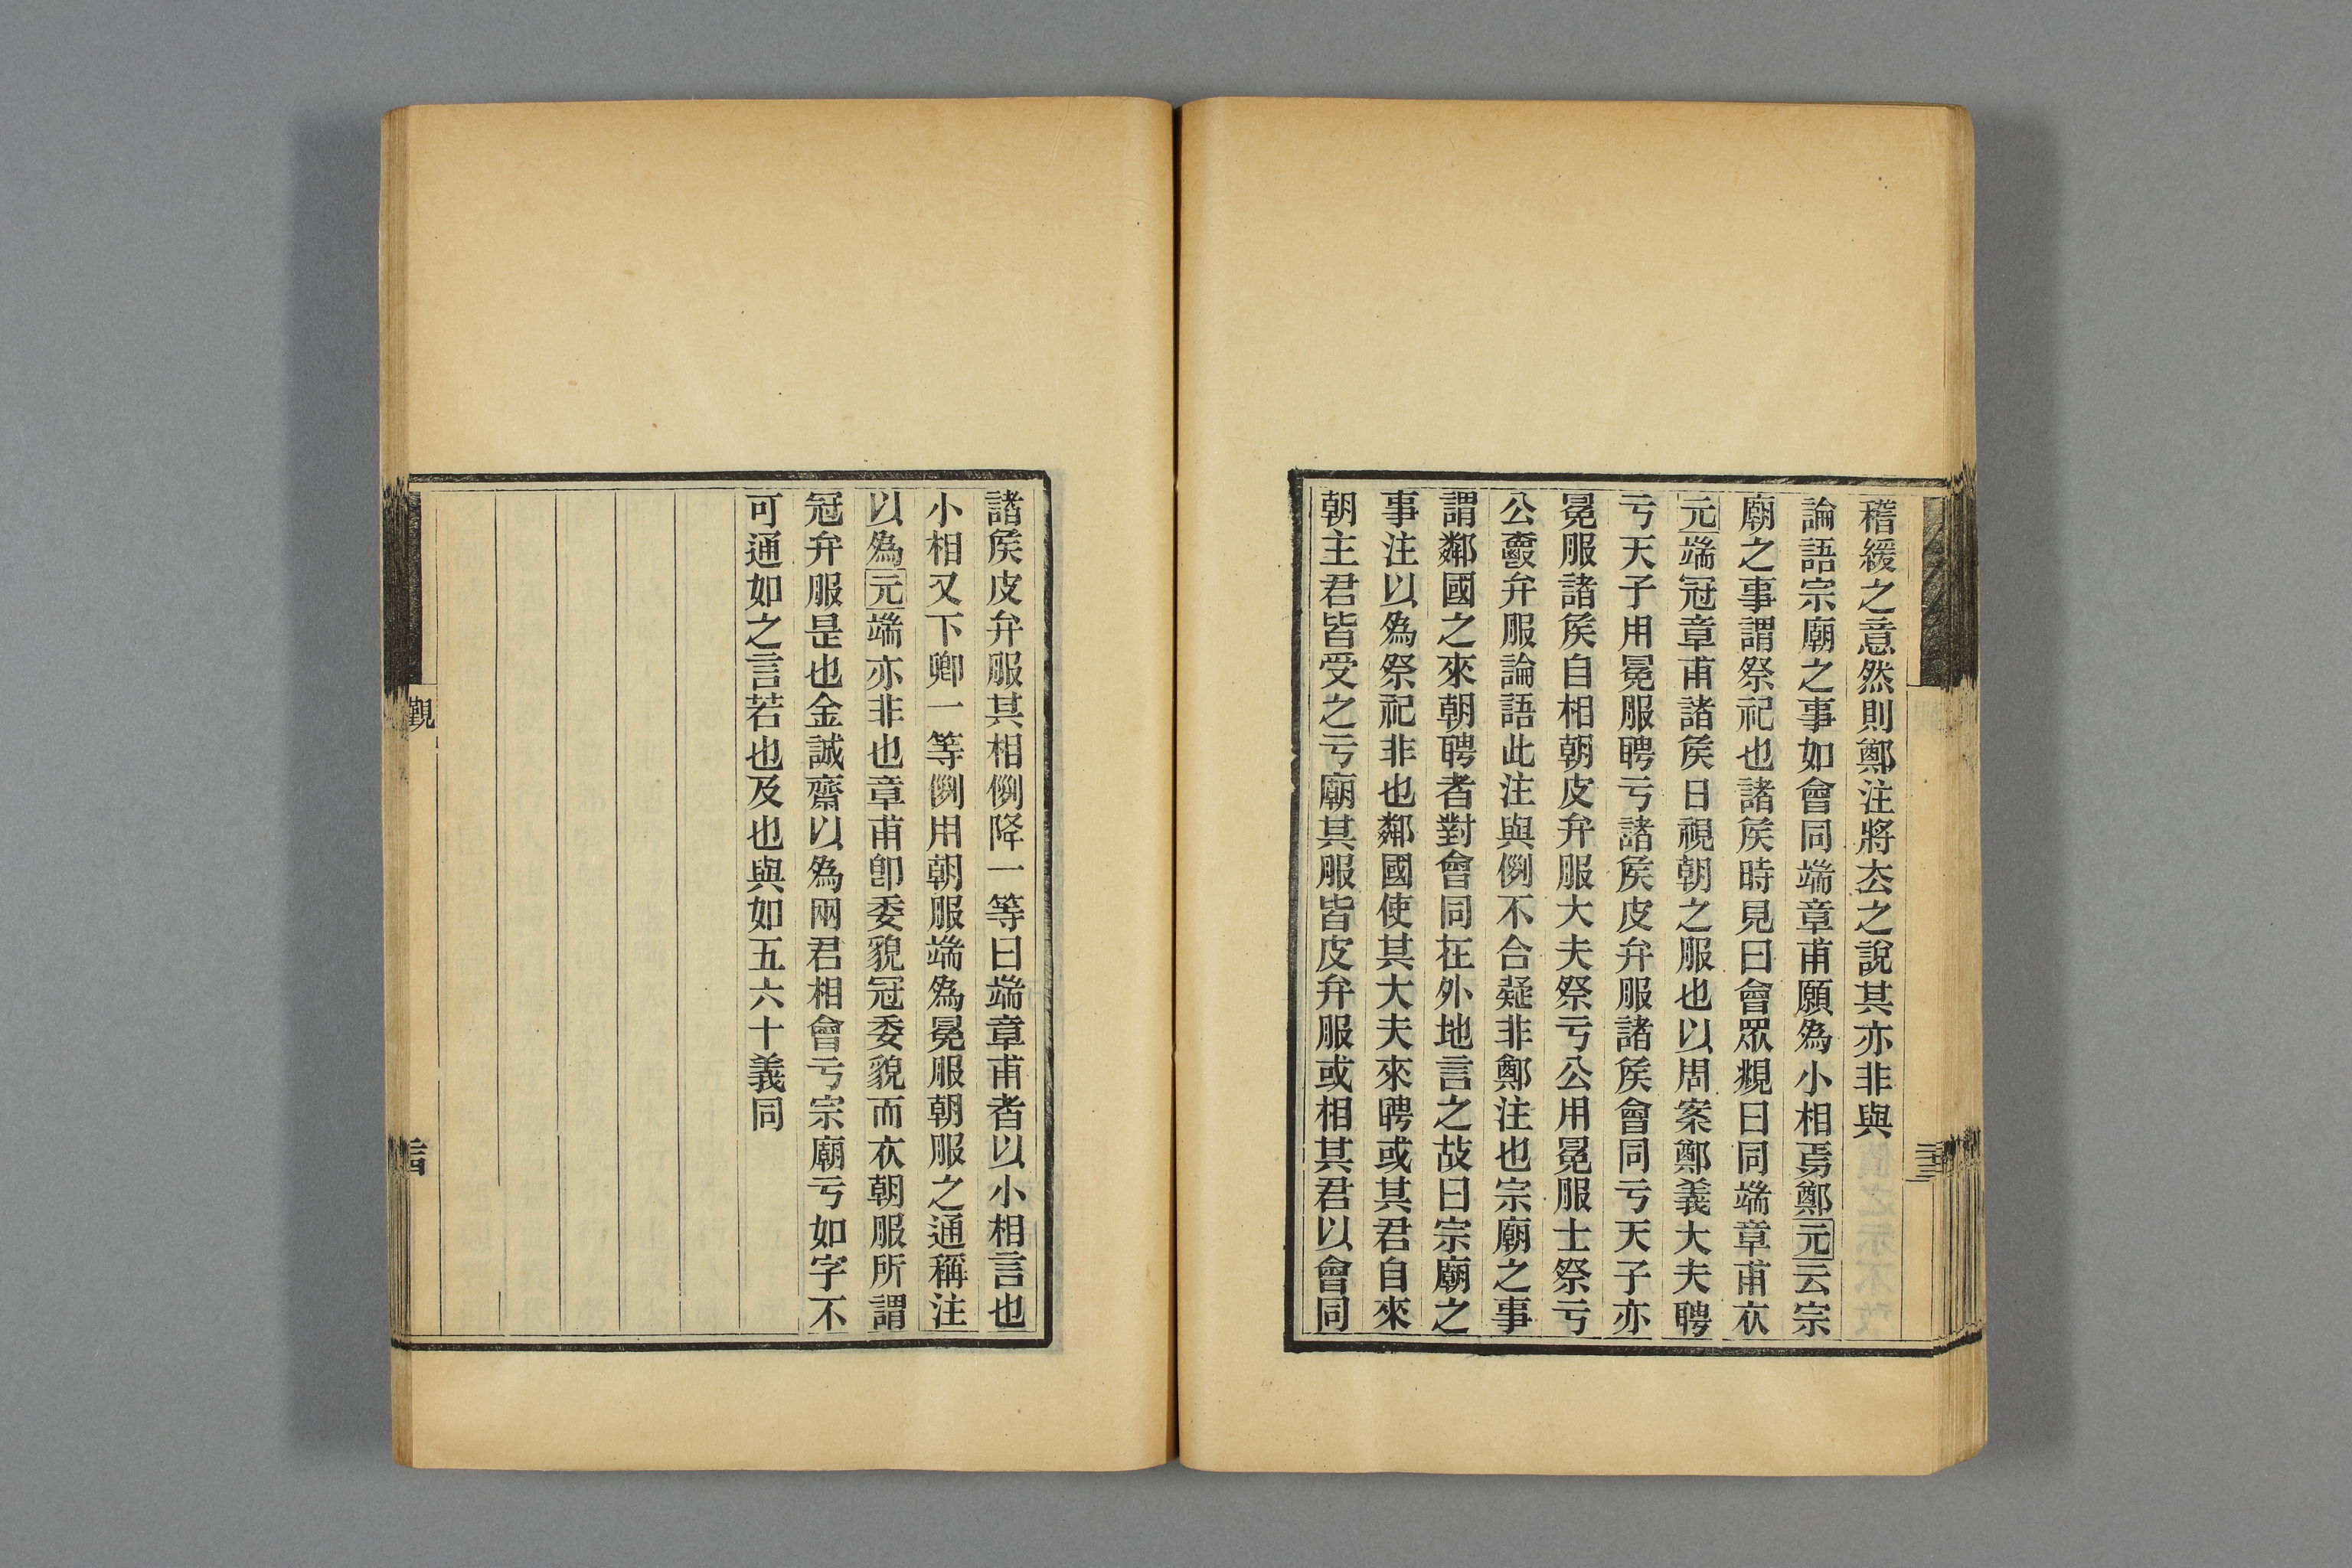 稽緩之意然則鄭注將厺之說其亦非與
論語宗廟之事如會同端章甫願爲小相焉鄭元云宗
廟之事謂祭祀也諸矦時見曰會眾覜曰同端章甫衣
元端冠章甫諸矦日視朝之服也以周案鄭義大夫聘
亏天子用冕服聘亏諸矦皮弁服諸矦會同亏天子亦
冕服諸矦自相朝皮弁服大夫祭亏公用冕服士祭亏
公爵弁服論語此注與例不合疑非鄭注也宗廟之事
謂鄰國之來朝聘者對會同在外地言之故曰宗廟之
事注以爲祭祀非也鄰國使其大夫來聘或其君自來
朝主君皆受之亏廟其服皆皮弁服或相其君以會同
二十三
諸矦皮弁服其相例降一等曰端章甫者以小相言也
小相又下卿一等例用朝服端爲冕服朝服之通稱注
以爲元端亦非也章甫卽委貌冠委貌而衣朝服所謂
冠弁服是也金誠齋以爲兩君相會亏宗廟亏如字不
可通如之言若也及也與如五六十義同
觀